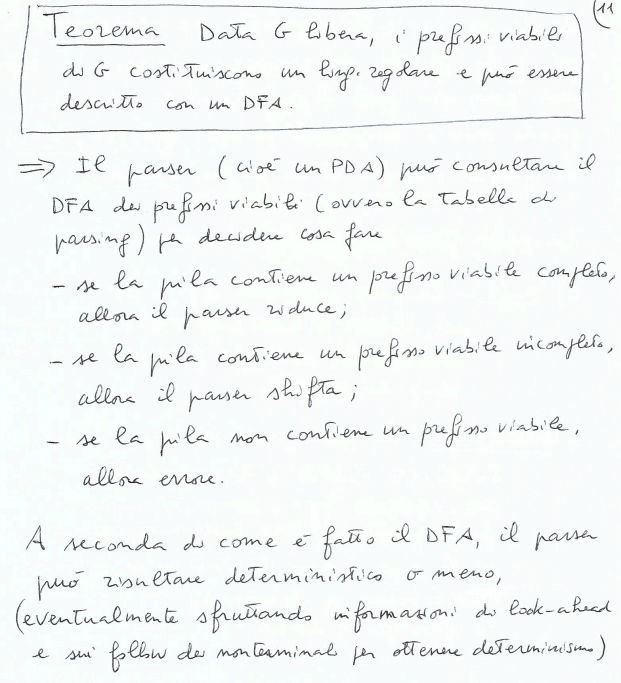 11
Teorema Data G libera, i prefissi viabili
di G costituiscono un ling. regolare e può essere
descritto con un DFA.
=> Il parser (cioè un PDA) può consultare il
DFA dei prefissi viabili (ovvero la tabella di
parsing) per decidere cosa fare
- se la pila contiene un prefisso viabile completo,
allora il parser riduce;
- se la pila contiene un prefisso viabile incompleto,
allora il parser shifta;
- se la pila non contiene un prefisso viabile,
allora errore.
A seconda di come è fatto il DFA, il parser
può risultare deterministico o meno,
(eventualmente sfruttando informazioni di look-ahead
e sui follow dei nonterminali per ottenere determinismo)